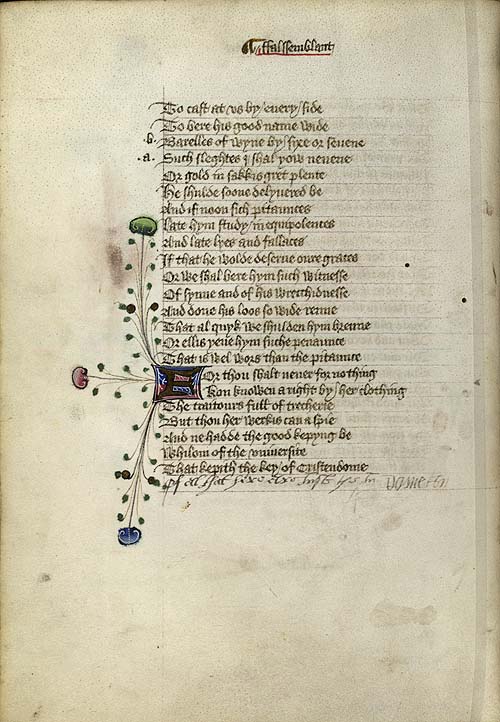 ffalssemblant
To cast at vs by euery side
To bere his good name wide
b. Barelles of wyne by sixe or seuene
a. Such sleghtes I shal yow neuene
Or gold in sakkis gret plente
He shulde soone delyuered be
And if noon sich pitaunces
Late hym study in equipolences
And late lyes and fallaces
If that he wolde deserue oure graces
Or we shal bere hym such witnesse
Of synne and of his wrecchidnesse
And done his loos so wide renne
That al quyk we shulden hym brenne
Or ellis yeue hym suche penaunce
That is wel wors than the pitaunce
For thou shalt neuer for nothing
Kon knowen a right by her clothing
The traitours full of trecherie
But thou her werkis can aspie
And ne hadde the good kepyng be
Whilom of the vniuersite
That kepith the key of Cristendome